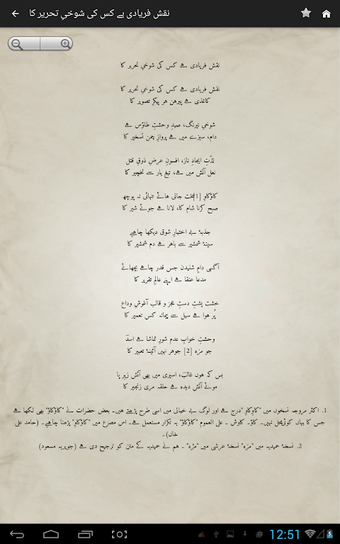 نقش فریادی ہے کس کی شوخیِ تحریر کا
نقش فریادی ہے کس کی شوخیِ تحریر کا
نقش فریادی ہے کس کی شوخیِ تحریر کا
کاغذی ہے پیرہن ہر پیکرِ تصویر کا
شوخیِ نیرنگ، صیدِ وحشتِ طاؤس ہے
دام، سبزے میں ہے پروازِ چمن تسخیر کا
لذّتِ ایجادِ ناز، افسونِ عرضِ ذوقِ قتل
نعل آتش میں ہے، تیغِ یار سے نخچیر کا
کاؤکاوِ [1]سخت جانی ہائے تنہائی نہ پوچھ
صبح کرنا شام کا، لانا ہے جوئے شیر کا
جذبۂ بے اختیارِ شوق دیکھا چاہیے
سینۂ شمشیر سے باہر ہے دم شمشیر کا
آگہی دامِ شنیدن جس قدر چاہے بچھائے
مدعا عنقا ہے اپنے عالمِ تقریر کا
خشت پشتِ دستِ عجز و قالب آغوشِ وداع
پُر ہوا ہے سیل سے پیمانہ کس تعمیر کا
وحشتِ خوابِ عدم شورِ تماشا ہے اسدؔ
جو مزہ [2] جوہر نہیں آئینۂ تعبیر کا
بس کہ ہوں غالبؔ، اسیری میں بھی آتش زیرِ پا
موئے آتش دیدہ ہے حلقہ مری زنجیر کا
1. اکثر مروجہ نسخوں میں "کاوِکاوِ" درج ہے اور لوگ بے خیالی میں اسی طرح پڑھتے ہیں۔ بعض حضرات نے "کاؤکاؤ" بھی لکھا ہے
جس کا یہاں کوئی محل نہیں۔ کاؤ۔ کاوش ۔ علی العموم "کاؤکاؤ" بہ تکرار مستعمل ہے۔ اس مصرع میں "کاؤکاوِ" پڑھنا چاہیے۔ (حامد علی
خان)۔
2. نسخۂ حمیدیہ میں "مزہ" نسخۂ عرشی میں "مژہ"۔ ہم نے حمیدیہ کے متن کو ترجیح دی ہے (جویریہ مسعود)
12:51